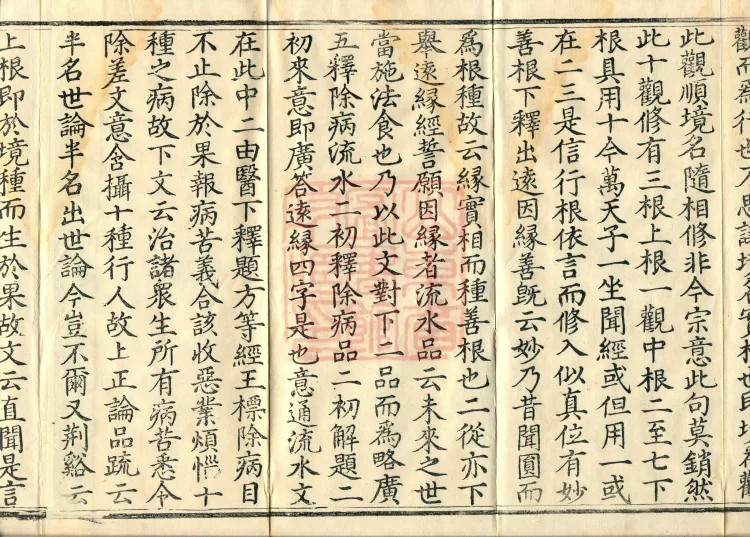 觀而為行也不思議境名實相也即境為觀
此觀順境名隨相修非今宗意此句莫銷然
此十觀修有三根上根一觀中根二至七下
根具用十今萬天子一坐聞經或但用一或
在二三是信行根依言而修入似真位有妙
善根下釋出遠因緣善旣云妙乃昔聞圓而
為根種故云緣實相而種善根也二從亦下
舉遠緣經誓願因緣者流水品云未來之世
當施法食也乃以此文對下二品而為略廣
五釋除病流水二初釋除病品二初解題二
初來意即廣答遠緣四字是也意通流水文
在此中二由醫下釋題方等經王標除病目
不止除於果報病苦義合該收惡業煩惱十
種之病故下文云治諸眾生所有病苦悉令
除差文意含攝十種行人故上正論品疏云
半名世論半名出世論今豈不爾又荆谿云
上根即於境種而生於果故文云直聞是言